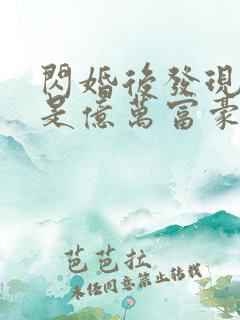 閃婚後發現
是億萬富豪
芭芭拉
未經同意禁止轉載